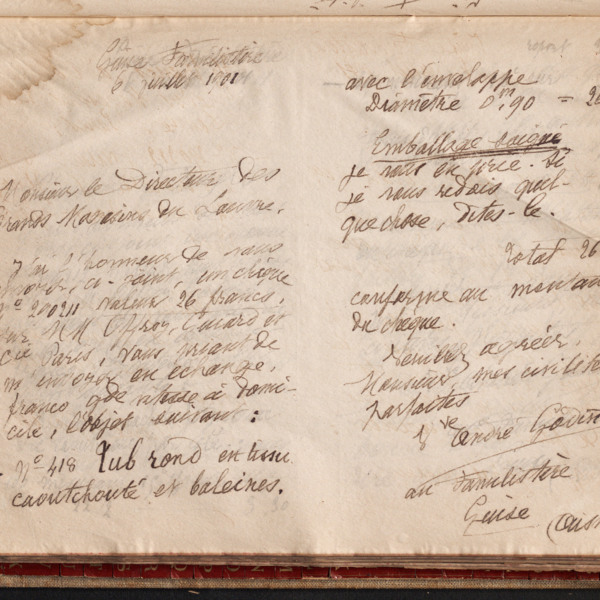 Guise Familistère
6 juillet 1901
Monsieur le Directeur des
Grands Magasins du Louvre,
J'ai l'honneur de vous
envoyer, ci-joint, un chèque
N° 200211 valeur 26 francs,
sur MM Offroy, Guiard et
Cie Paris, vous priant de
m'envoyer en échange,
franco gde vitesse à domi-
cile, l'objet suivant :
N° 418 Tub rond en tissu
caoutchouté et baleines.
avec l'enveloppe
Diamètre 0m,90 = 26
Emballage soigné
je vous en prie. Si
je vous redois quel-
que chose, dites-le.
Total 26
conforme au montant
du chèque.
Veuillez agréer,
Monsieur, mes civilités
parfaites
Vve André Godin
au Familistère
Guise (Aisne